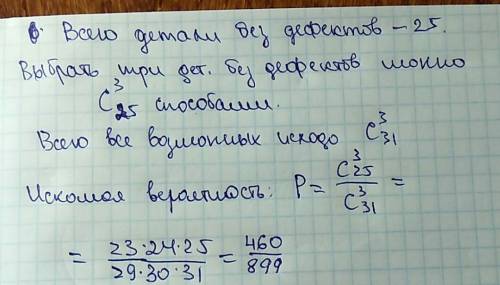 Всего детали без дефектов – 25.
Выбрать три дет. без дефектов можно
C³₂₅ способами.
Всего все возможных исходо C³₃₁
Искомая вероятность: P = C³₂₅ / C³₃₁ =
= 23·24·25 / 29·30·31 = 460 / 899